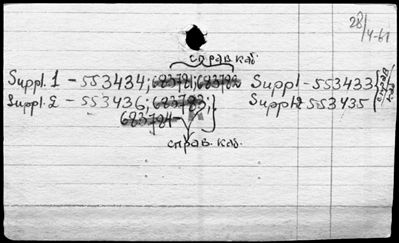 28/4-61
справ. каб.
Suppl. 1 - 553434; 683781; 683782 Suppl - 553433
Suppl. 2 - 553436; 683783; Suppl 2 553435
683784
справ. каб.